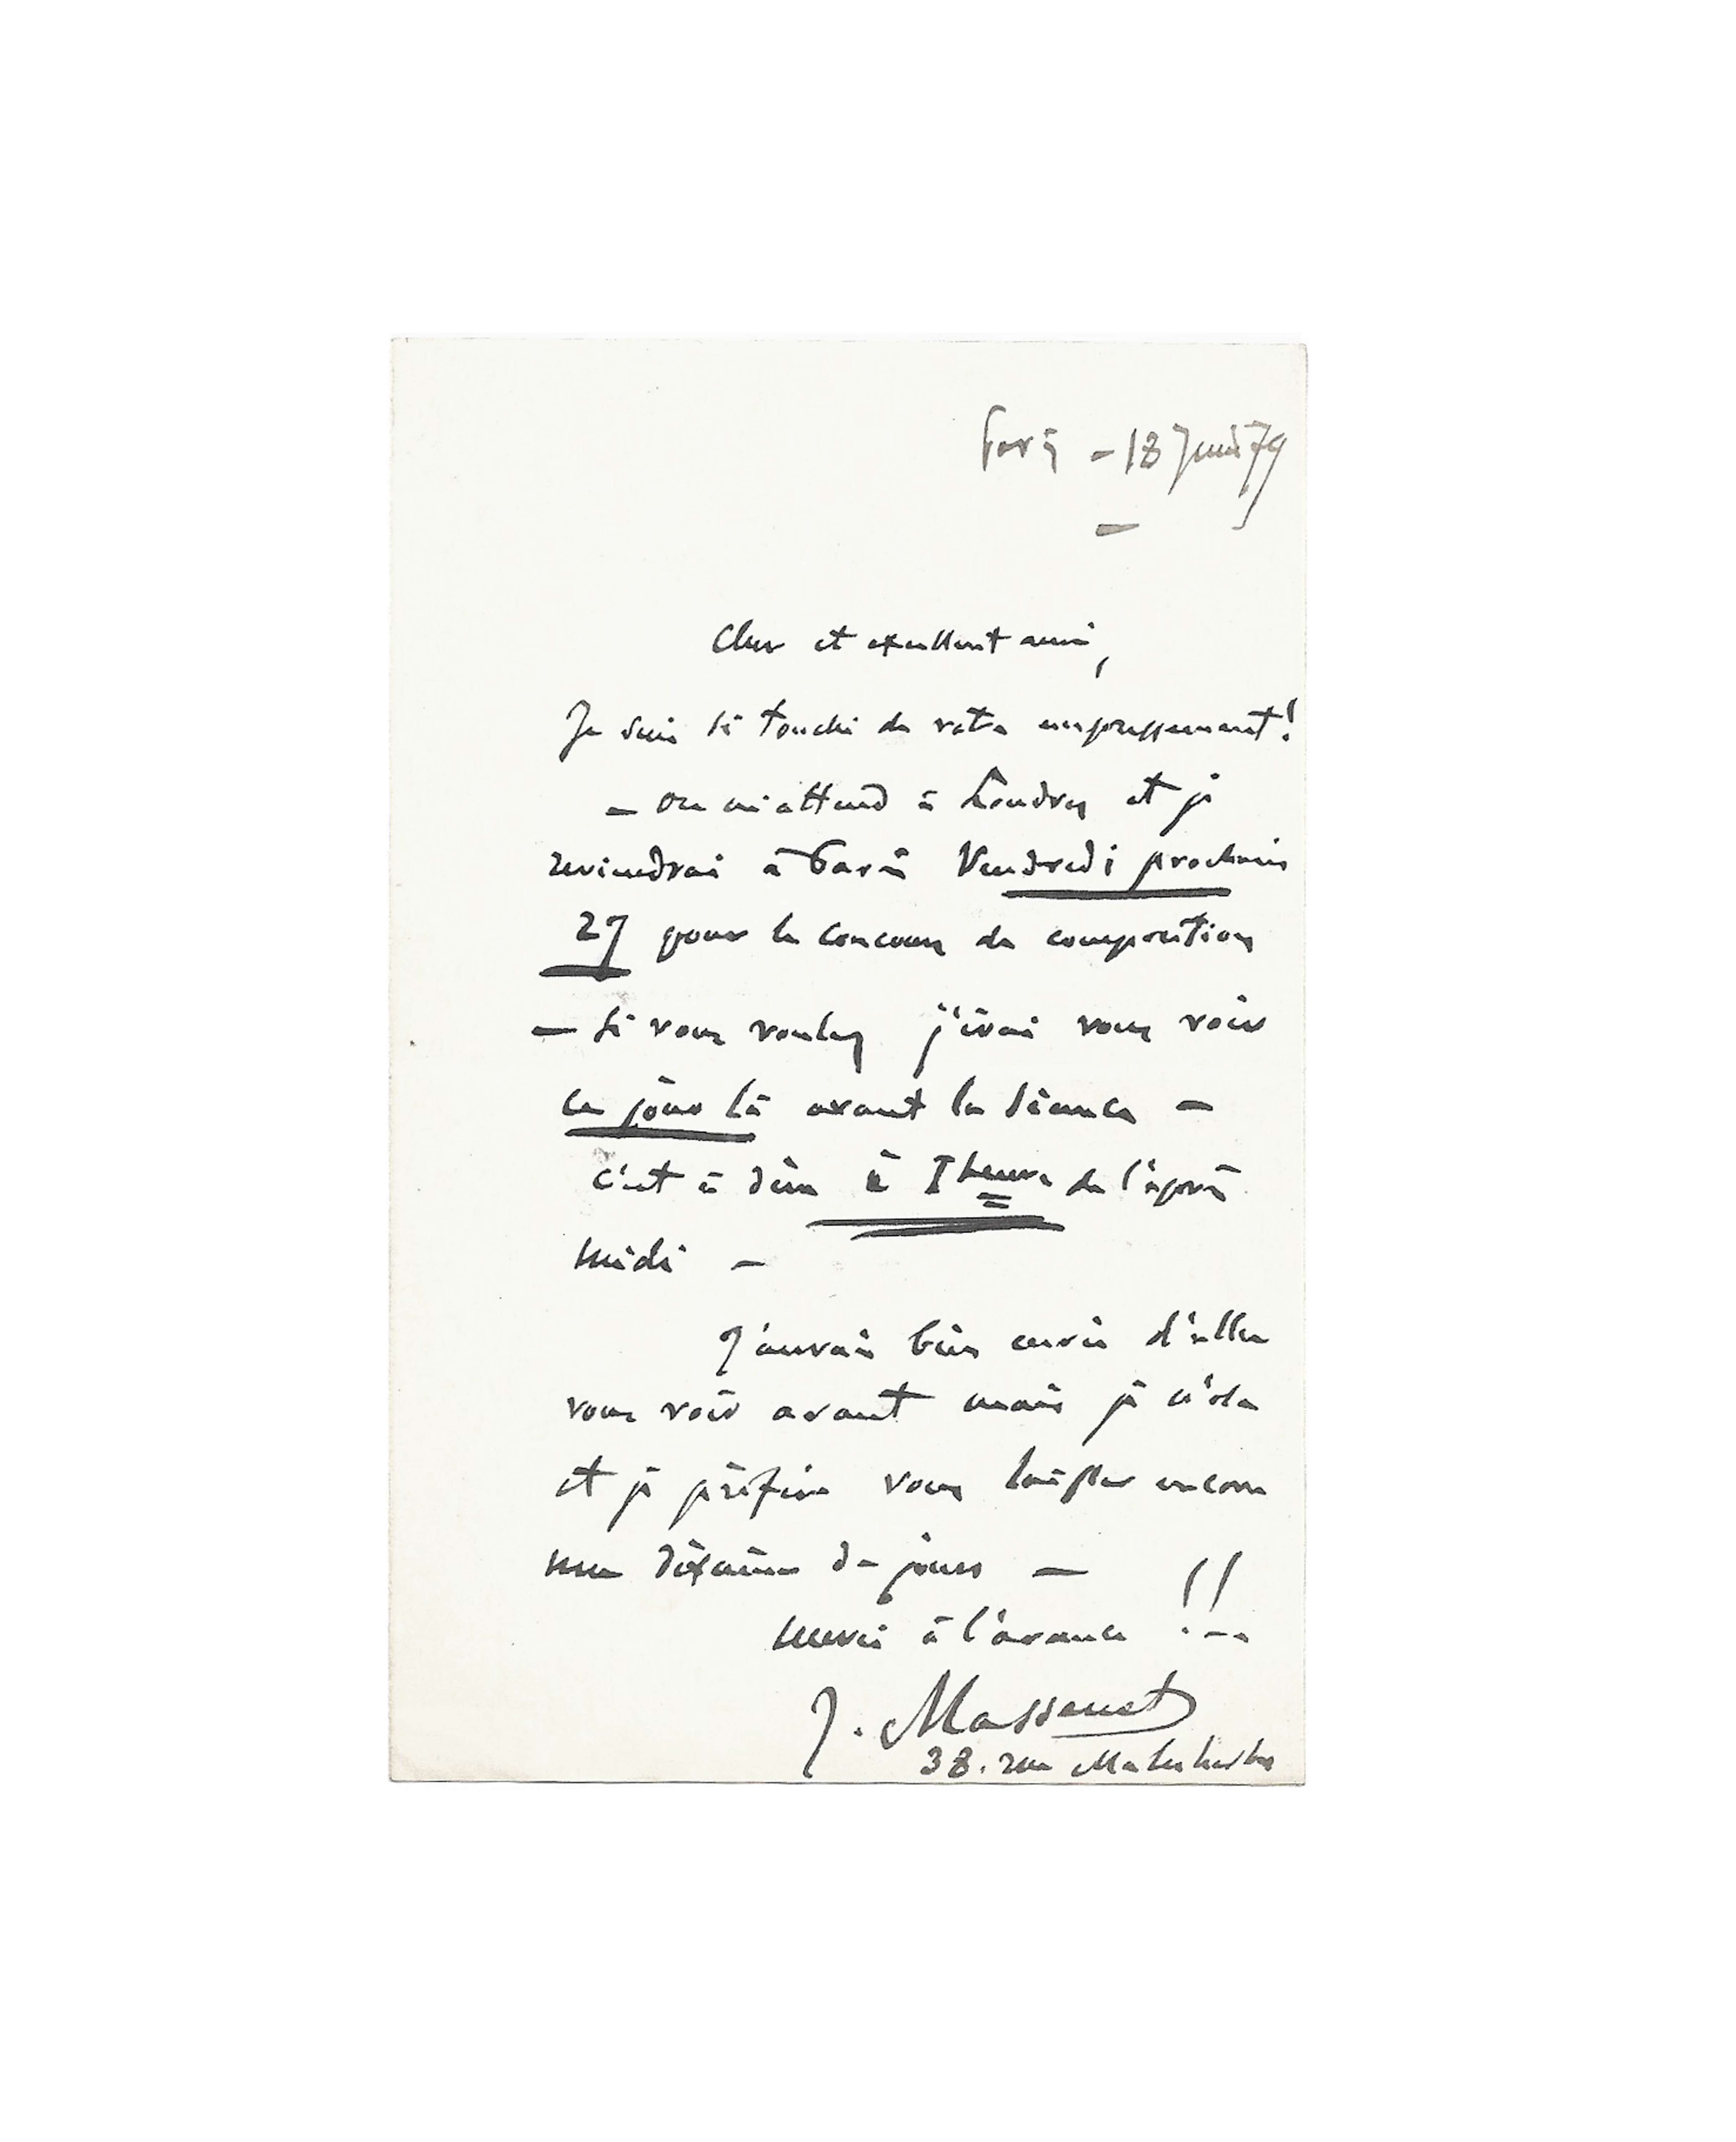 Paris - 18 Juin 79
Cher et excellent ami,
Je suis si touché de votre empressement!
- on m'attend à Londres et je
reviendrai à Paris Vendredi prochain
27 pour le concours de composition
- Si vous voulez j'irai vous voir
ce jour là avant la séance -
c'est à dire à 1 heure de l'après
midi -
J'aurais bien envie d'aller
vous voir avant mais je n'ose
et je préfère vous laisser encore
une dixaine de jours -
merci à l'avance !!
J. Massenet
38. rue Malesherbes